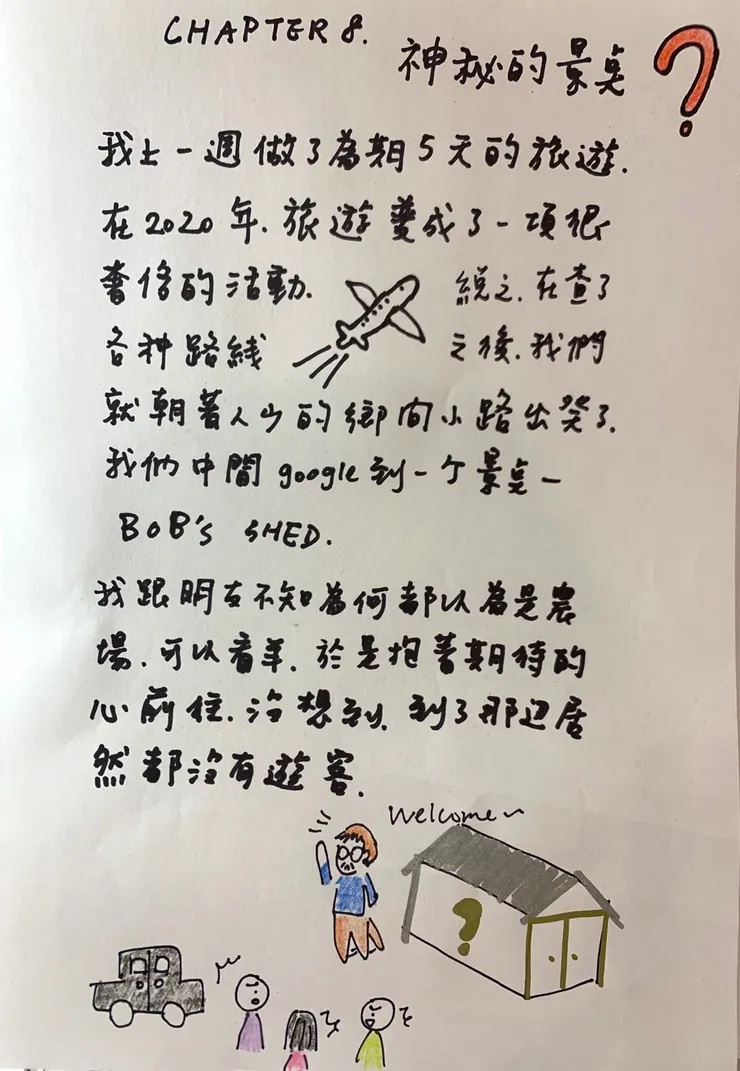 CHAPTER 8.
神祕的景奌 ?
我上一週做了為期5天的旅遊.
在2020年.旅遊變成了一項很
奢侈的活動. 総之.在查了
各种路綫之後.我們
就朝著人少的鄉間小路出発了.
我們中間google到一个景奌—
BOB's SHED.
我跟朋友不知為何都以為是農
場.可以看羊.於是抱著期待的
心前往.沒想到.到了那边居
然都沒有遊客.
Welcome~
?